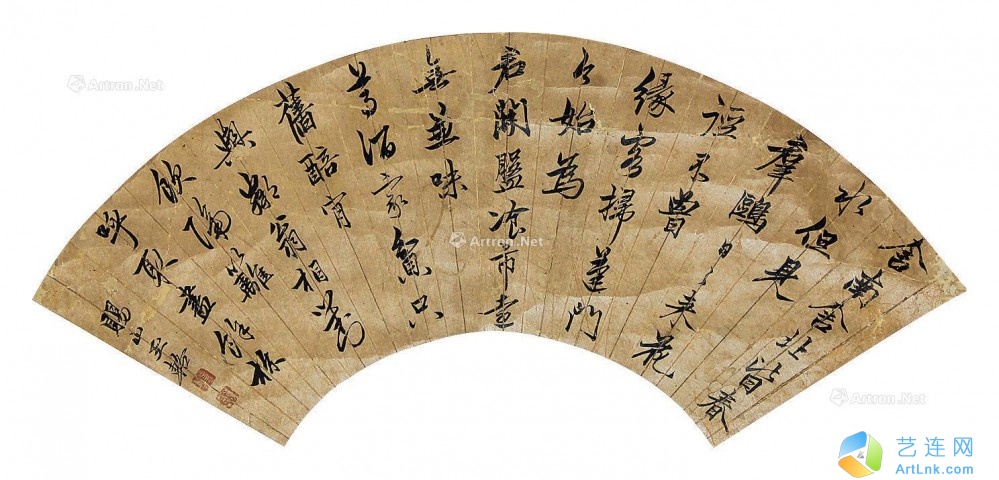 舍南舍北皆春
水但見
羣鷗日々来花
徑不曾
緣客掃蓬門
今始為
君開盤飱市遠
無兼味
尊酒家貧只
舊醅肯
與鄰翁相對
飲隔籬
呼取盡餘杯
Artron.Net
Artron.Net
Artron.Net
艺连网
ArtLnk.com